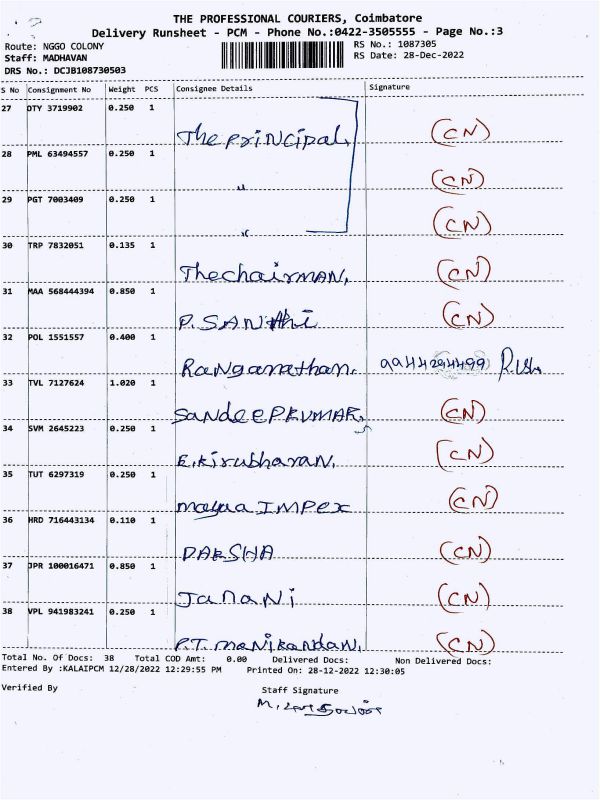 THE PROFESSIONAL COURIERS, Coimbatore
Delivery Runsheet - PCM - Phone No.:0422-3505555 - Page No.:3
Route: NGGO COLONY RS No.: 1087305
Staff: MADHAVAN RS Date: 28-Dec-2022
DRS No.: DCJB108730503
S No Consignment No Weight PCS Consignee Details Signature
27 DTY 3719902 0.250 1
The Principal, (CN)
28 PML 63494557 0.250 1
" (CN)
29 PGT 7003409 0.250 1
" (CN)
30 TRP 7832051 0.135 1
The chairman, (CN)
31 MAA 568444394 0.850 1
P. SANthi (CN)
32 POL 1551557 0.400 1
Ranganathan. 9944294499
33 TVL 7127624 1.020 1
SandeePKUMAR, (CN)
34 SVM 2645223 0.250 1
E. Kirubharan, (CN)
35 TUT 6297319 0.250 1
IMPEX (CN)
36 HRD 716443134 0.110 1
DARSHA (CN)
37 JPR 100016471 0.850 1
Janani (CN)
38 VPL 941983241 0.250 1
P.T. Manikandan, (CN)
Total No. Of Docs: 38 Total COD Amt: 0.00 Delivered Docs: Non Delivered Docs:
Entered By :KALAIPCM 12/28/2022 12:29:55 PM Printed On: 28-12-2022 12:30:05
Verified By Staff Signature